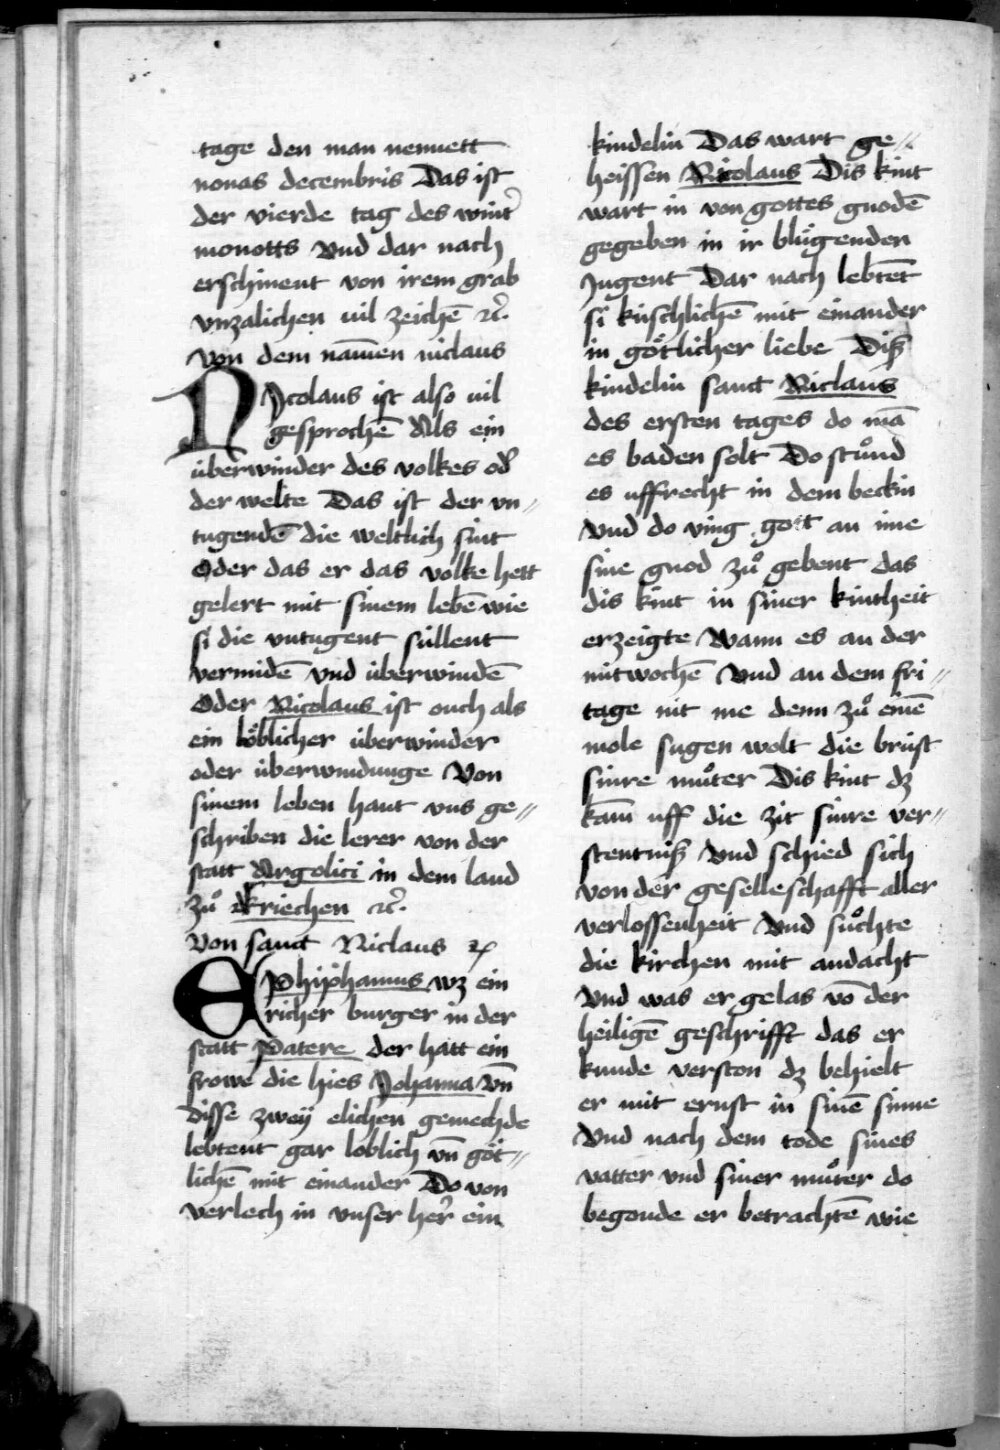 tage den man nennett
nonas decembris Das ist
der vierde tag des wint͛
monotts Vnd dar nach
erschinent von irem grab
vnzalichen vil zeichē ⁊c̉.
Von dem nam̄en niclaus
NJcolaus ist also vil
gesprochē Als ein
überwinder des volkes od͛
der welte Das ist der vn⸗
tugendē die weltlich sint
Oder das er das volke hett
gelert mit sinem lebē wie
si die vntugent süllent
vermidē vnd überwindē
Oder Nicolaus ist ouch als
ein löblicher überwinder
oder überwindunge Von
sinem leben hant vns ge⸗
schriben die lerer von der
statt Argolici in dem land
zuͦ kriechen ⁊c̉.
Von sanct Niclaus
EPhiphanius wz ein
richer burger in der
statt Patere der hatt ein
frowe die hies Johanna vn̄
disse zweÿ elichen gemechde
lebtent gar loblich vn̄ göt⸗
lichē mit einander Do von
verlech in vnser her͛ ein
kindelin Das wart ge⸗
heissen Nicolaus Dis kint
wart in von gottes gnodē
gegeben in ir blügenden
Jugent Dar nach lebtēt
si küschlichē mit einander
in götlicher liebe Diß
kindelin sanct Niclaus
des ersten tages do mā
es baden solt Do stuͦnd
es uffrecht in dem beckin
Vnd do ving gott an ime
sine gnod zuͦ gebent das
dis kint in siner kintheit
erzeigte Wann es an der
mitwochē Vnd an dem fri⸗
tage nit me denn zuͦ einē
mole sugen wolt die brüst
sinre muͦter Dis kint dz
kam̄ uff die zit sinre ver⸗
stentniß Vnd schied sich
von der geselleschafft aller
verlossenheit Vnd suͦchte
die kirchen mit andacht
Vnd was er gelas vō der
heiligē geschrifft das er
kunde verston dz behielt
er mit ernst in sinē sinne
Vnd nach dem tode sines
vatter vnd siner muͦter do
begonde er betrachtē wie